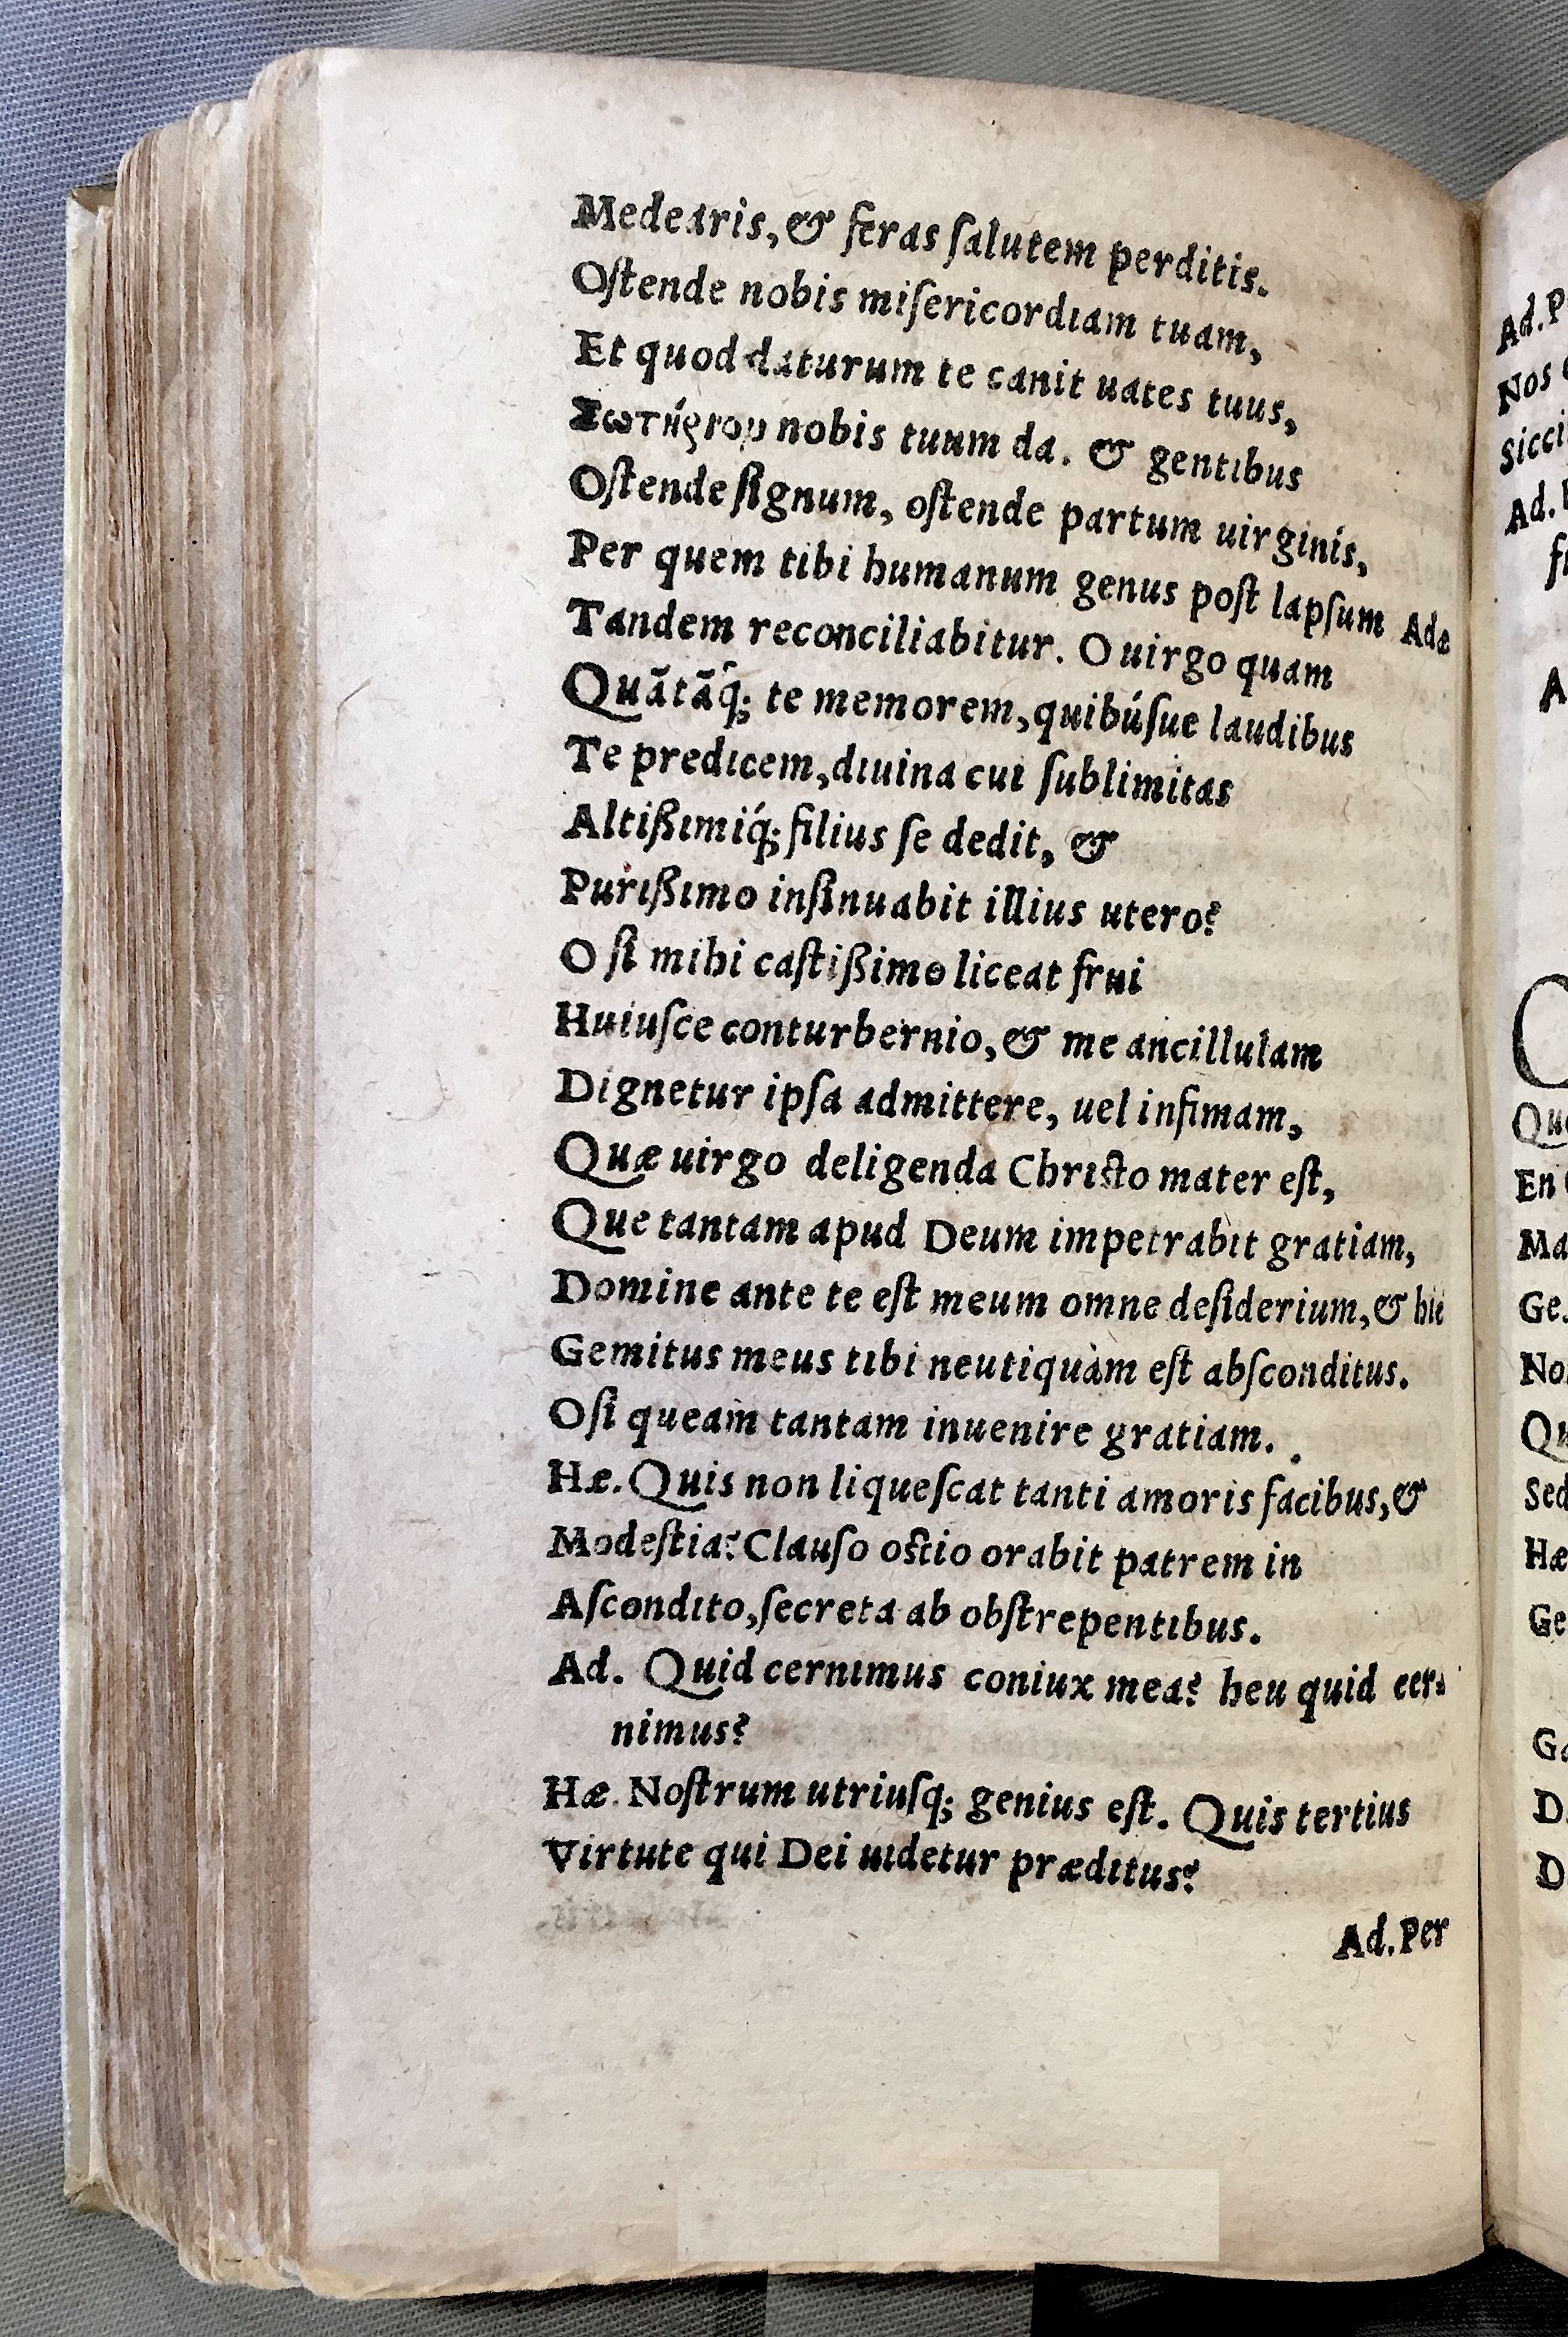 Medearis, & feras ſalutem perditis.
Oſtende nobis miſericordiam tuam,
Et quod daturum te canit uates tuus,
Σωτήριον nobis tuum da. & gentibus
Oſtende ſignum, oſtende partum uirginis,
Per quem tibi humanum genus poſt lapſum Adæ
Tandem reconciliabitur. O uirgo quam
Quãtãq́; te memorem, quibúſue laudibus
Te predicem, diuina cui ſublimitas
Altißimiq́; filius ſe dedit, &
Purißimo inſinuabit illius utero?
O ſi mihi caſtißimo liceat frui
Huiuſce conturbernio, & me ancillulam
Dignetur ipſa admittere, uel infimam,
Quæ uirgo deligenda Chriſto mater eſt,
Que tantam apud Deum impetrabit gratiam,
Domine ante te eſt meum omne deſiderium, & hic
Gemitus meus tibi neutiquàm eſt abſconditus.
O ſi queam tantam inuenire gratiam.
Hæ. Quis non liqueſcat tanti amoris facibus, &
Modeſtia? Clauſo oſtio orabit patrem in
Aſcondito, ſecreta ab obſtrepentibus.
Ad. Quid cernimus coniux mea? heu quid cer-
nimus?
Hæ. Noſtrum utriuſq; genius eſt. Quis tertius
Virtute qui Dei uidetur præditus?
Ad. Per
Ad. P
Nos
Sicci
Ad.
A
Que
En
Ma
Ge.
No
Qu
Sed
Hæ
Ge
Ga
D
D